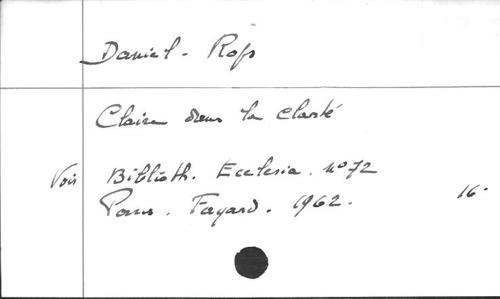 Daniel-Rops
Claire dans la clarté
Voir Biblioth. Ecclesia. n° 72
Paris. Fayard. 1962. 16°